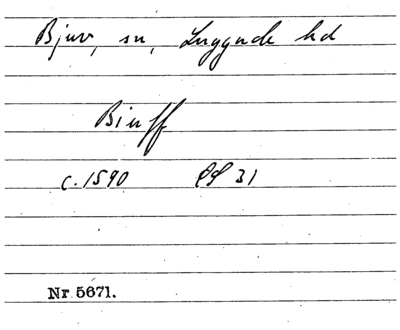 Bjuv, sn, Luggude hd
Biuff
c. 1590 31
Nr 5671.